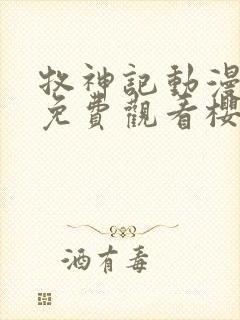 牧神記動漫
免費觀看櫻
酒有毒